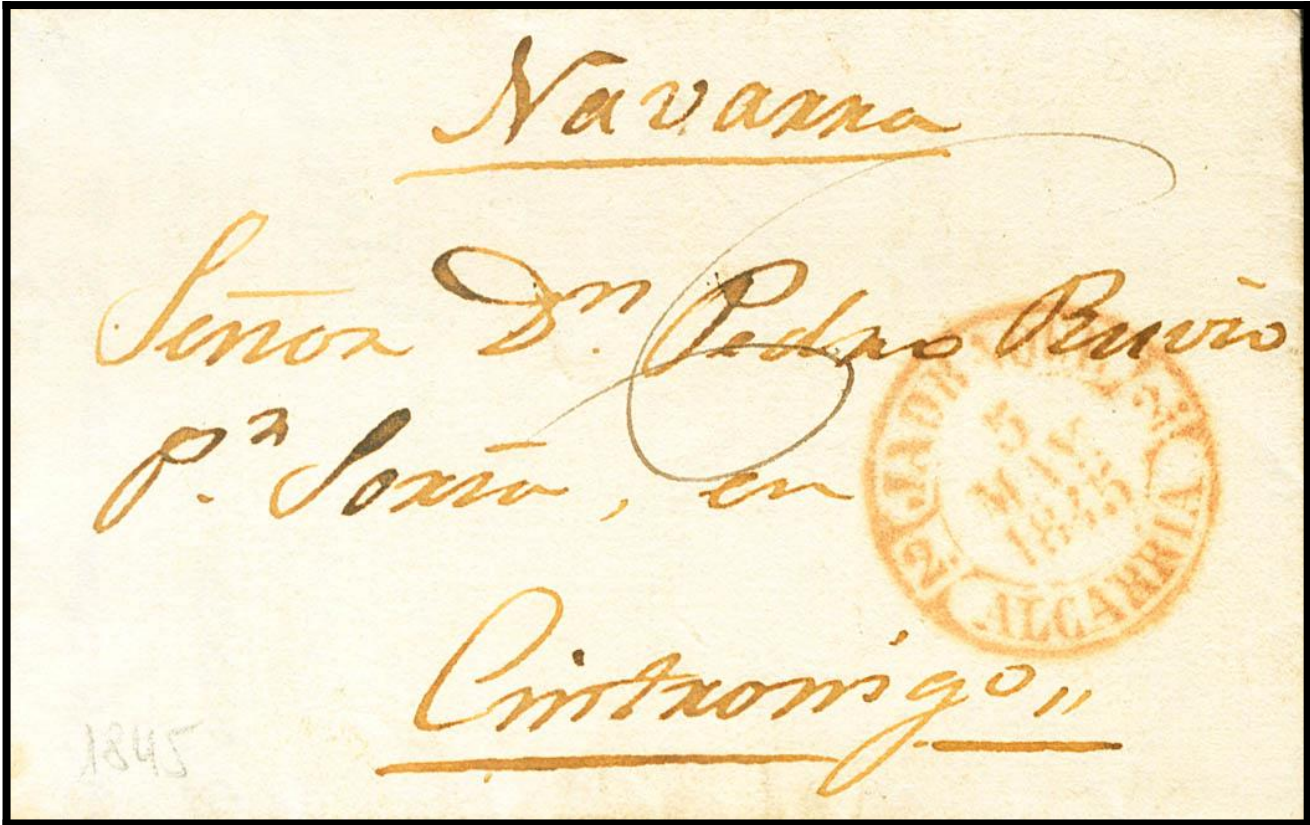 Navarra
Señor Dⁿ. Pedro Ruvio
P.ª Soria, en
Cintronigº„
JADRAQUE
5
MAY
1845
2
ALCARRIA
2
1845